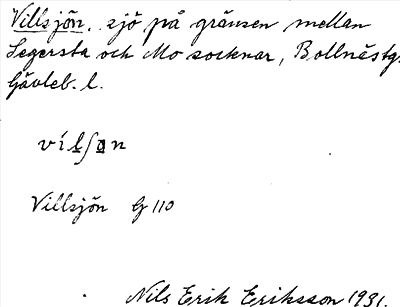 Villsjön, sjö på gränsen mellan
Segersta och Mo socknar, Bollnästg.
Gävleb. l.
vílʃøn
Villsjön G 110
Nils Erik Eriksson 1931.